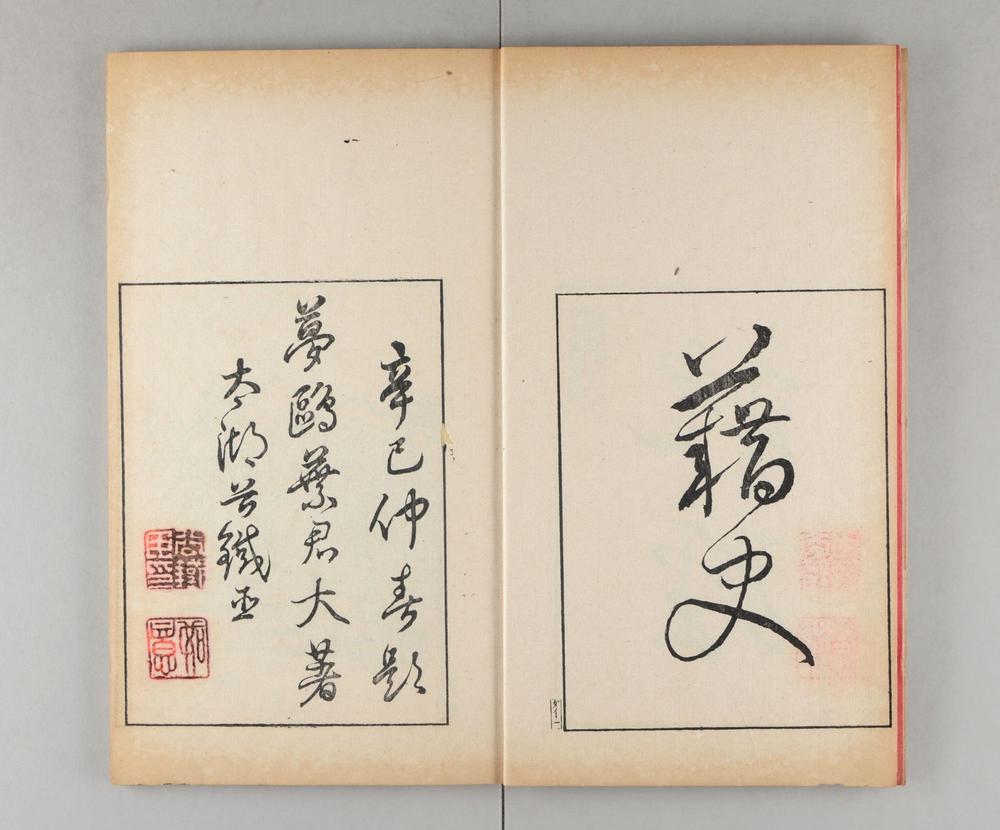 藉史
辛巳仲春題
夢鷗葉君大著
太湖 鐵